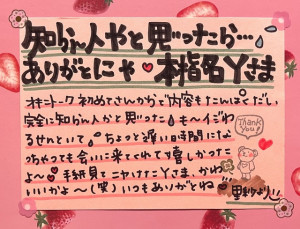 知らん人やと思ったら…
ありがとにゃ♥本指名Yさま
オキニトーク初めてさんからで内容もたんぱくだし、
完全に知らん人かと思った も〜イジわ
るせんといて ちょっと遅い時間にな
っちゃっても会いに来てくれて嬉しかった
よ〜 手紙見てニヤけたYさま、かわ
いいかよ〜(笑)いつもありがとね
Thank you!
より